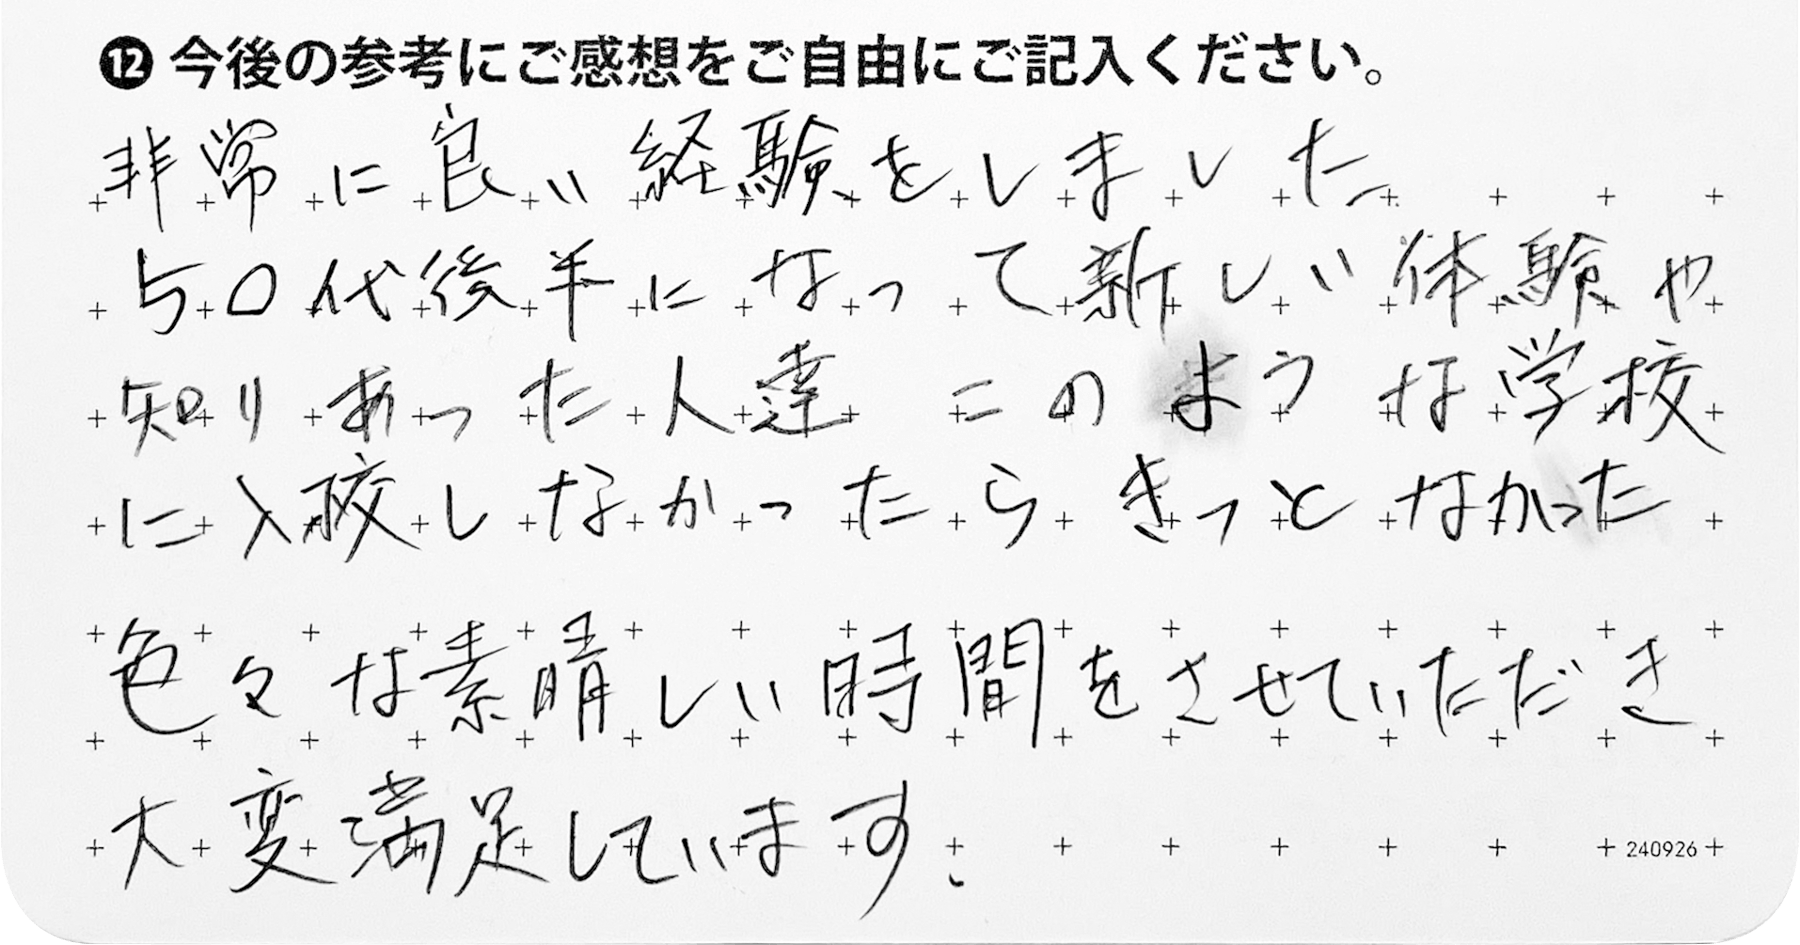 ⓬ 今後の参考にご感想をご自由にご記入ください。
非常に良い経験をしました。
50代後半になって新しい体験や
知りあった人達 このような学校
に入校しなかったらきっとなかった
色々な素晴しい時間をさせていただき
大変満足しています.
240926